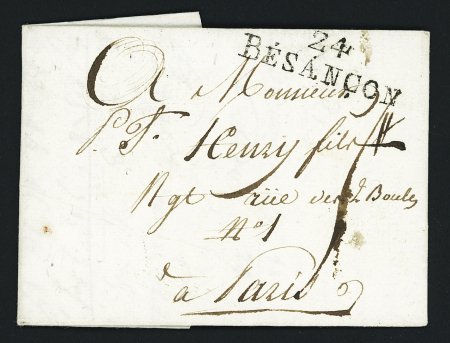 24
BÉSANÇON
A Monsieur
P. F. Henry fils
Ngt rüe des 2 Boules
N° 1
à Paris